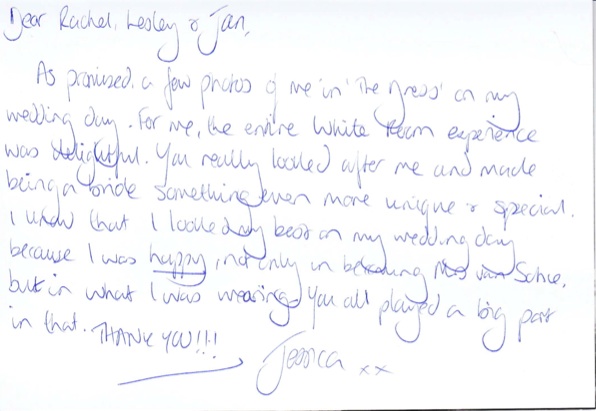 Dear Rachel, Lesley & Jan,
As promised, a few photos of me in 'The Dress' on my
wedding day. For me, the entire White Room experience
was delightful. You really looked after me and made
being a bride something even more unique & special.
I know that I looked my best on my wedding day
because I was happy, not only in becoming Mrs van Schie,
but in what I was wearing. You all played a big part
in that. THANK YOU!!!
Jessica xx